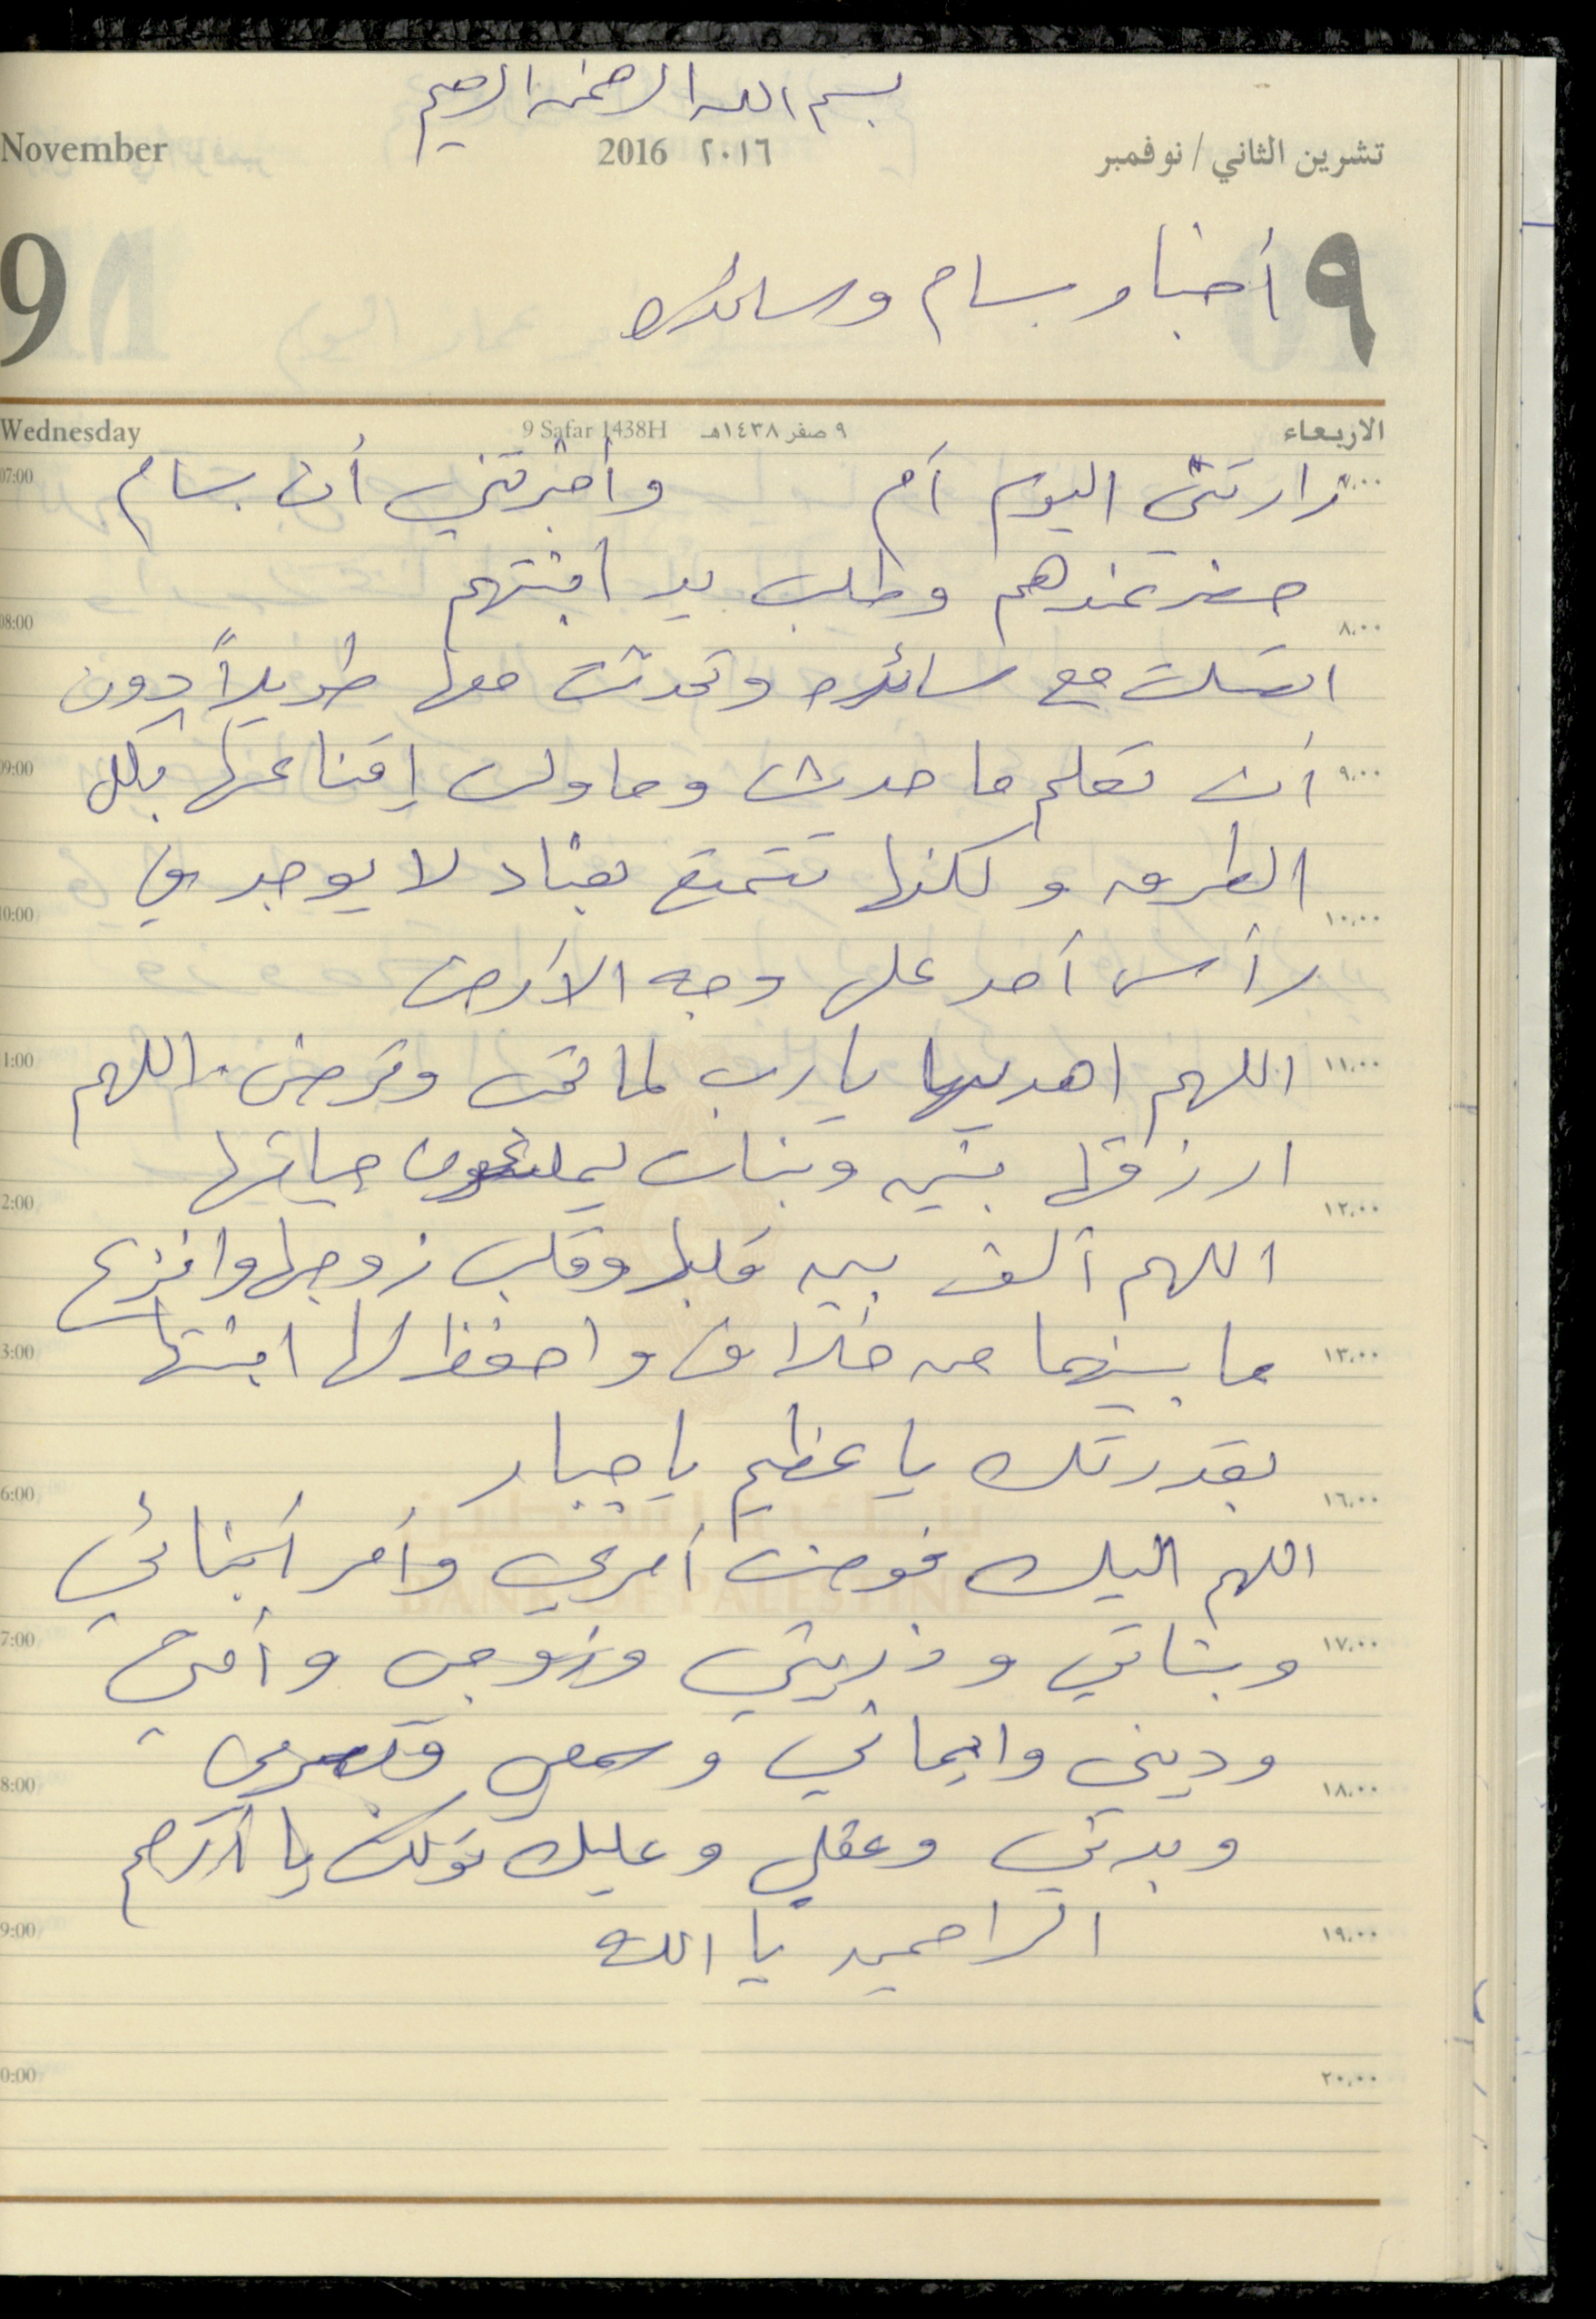 بسم الله الرحمن الرحيم
November 2016 ٢٠١٦ تشرين الثاني / نوفمبر
9 ٩
أخبار بسام وسائده
Wednesday 9 Safar 1438H ٩ صفر ١٤٣٨هـ الاربعاء
07:00 زارتني اليوم أم وأخبرتني أن بسام ٧،٠٠
حضر عندهم وطلب يد ابنتهم
08:00 ٨،٠٠
اتصلت مع سائده وتحدثت معها طويلاً دون
09:00 أن تعلم ما حدث وحاولت إقناعها بكل ٩،٠٠
الطرق ولكنها تتمتع بعناد لا يوجد في
10:00 ١٠،٠٠
رأس أحد على وجه الأرض
11:00 اللهم اهديها يارب لما تحب وترضى. اللهم ١١،٠٠
ارزقها بنين وبنات يملئون حياتها
12:00 ١٢،٠٠
اللهم ألف بين قلبها وقلب زوجها وانزع
13:00 ما بينهما من خلاف واحفظ لها ابنتها ١٣،٠٠
بقدرتك يا عظيم يا جبار
16:00 ١٦،٠٠
بنك فلسطين
BANK OF PALESTINE
اللهم اليك فوضت أمري وأمر أبنائي
17:00 وبناتي وذريتي وزوجي وأمي ١٧،٠٠
وديني وايماني وسمعي وبصري
18:00 ١٨،٠٠
وبدني وعقلي وعليك توكلت يا أرحم
19:00 الراحمين يا الله ١٩،٠٠
20:00 ٢٠،٠٠